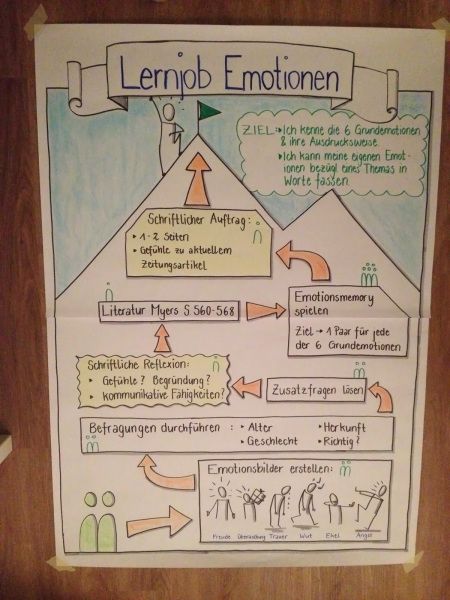 Lernjob Emotionen
ZIEL: • Ich kenne die 6 Grundemotionen
& ihre Ausdrucksweise.
• Ich kann meine eigenen Emot-
ionen bezügl. eines Themas in
Worte fassen.
Schriftlicher Auftrag:
• 1-2 Seiten
• Gefühle zu aktuellem
Zeitungsartikel
Literatur Myers S. 560-568
Emotionsmemory
spielen
Ziel → 1 Paar für jede
der 6 Grundemotionen
Schriftliche Reflexion:
• Gefühle? Begründung?
• kommunikative Fähigkeiten?
Zusatzfragen lösen
Befragungen durchführen: • Alter • Herkunft
• Geschlecht • Richtig?
Emotionsbilder erstellen:
Freude Überraschung Trauer Wut Ekel Angst